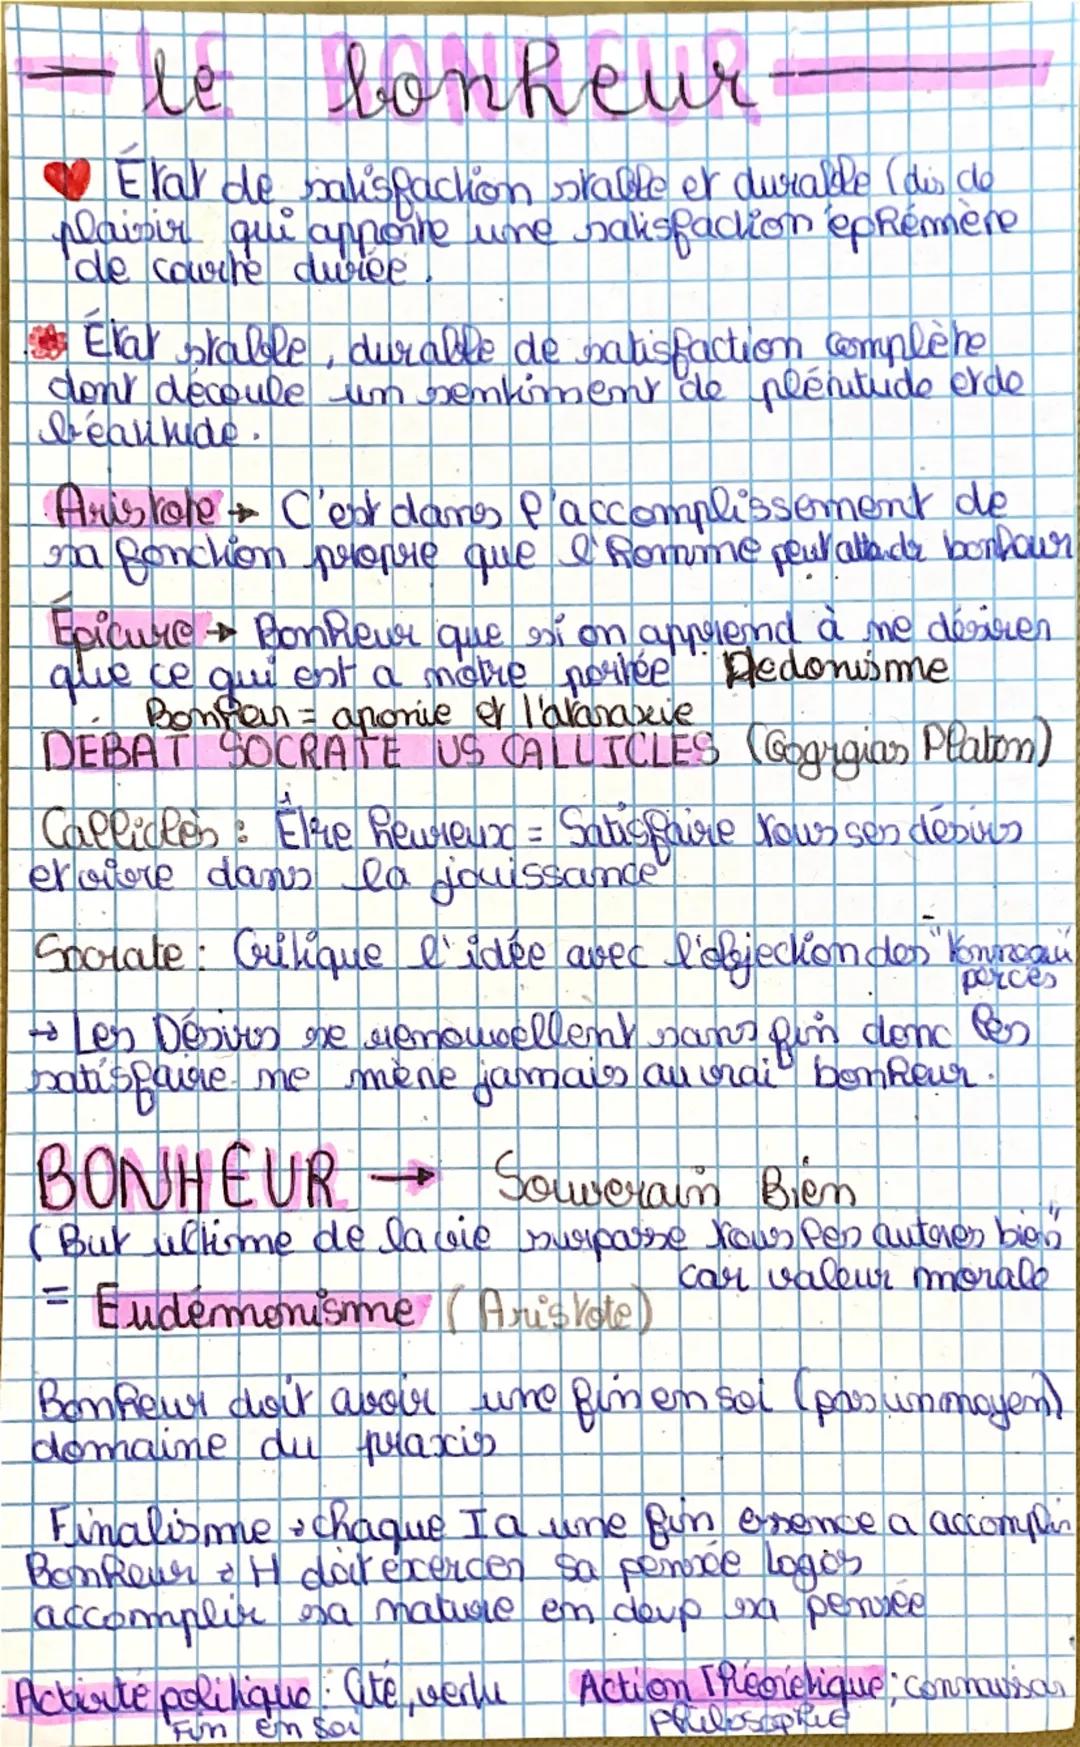 le bonheur
État de satisfaction stable et durable (dis de
plaisir qui apporte une satisfaction éphémère
de courte durée.
État stable, durable de satisfaction complète
dont découle un sentiment de plénitude et de
béatitude.
Aristote → C'est dans l'accomplissement de
sa fonction propre que l'homme peut attadr bonheur
Épicure → Bonheur que si on apprend à ne désirer
que ce qui est a notre portée Hedonisme
Bonheur = aponie et l'ataraxie
DÉBAT SOCRATE VS CALLICLES (Gogrgias Platon)
Callicles : Être heureux = Satisfaire tous ses désirs
et vivre dans la jouissance
Socrate : Critique l'idée avec l'objection des "tonneaux
percés
→ Les Désirs se renouvellent sans fin donc les
satisfaire ne mène jamais au vrai bonheur.
BONHEUR → Souverain Bien
(But ultime de la vie surpasse tous les autres biens
car valeur morale
= Eudémonisme (Aristote)
Bonheur doit avoir une fin en soi (pas un moyen)
domaine du praxis
Finalisme → chaque I a une fin essence a accomplir
Bonheur → H doit exercer sa pensée logos
accomplir sa nature en devp sa pensée
Activité politique : Cité, vertu Action Théorétique ; connaissan
Fin en soi philosophie